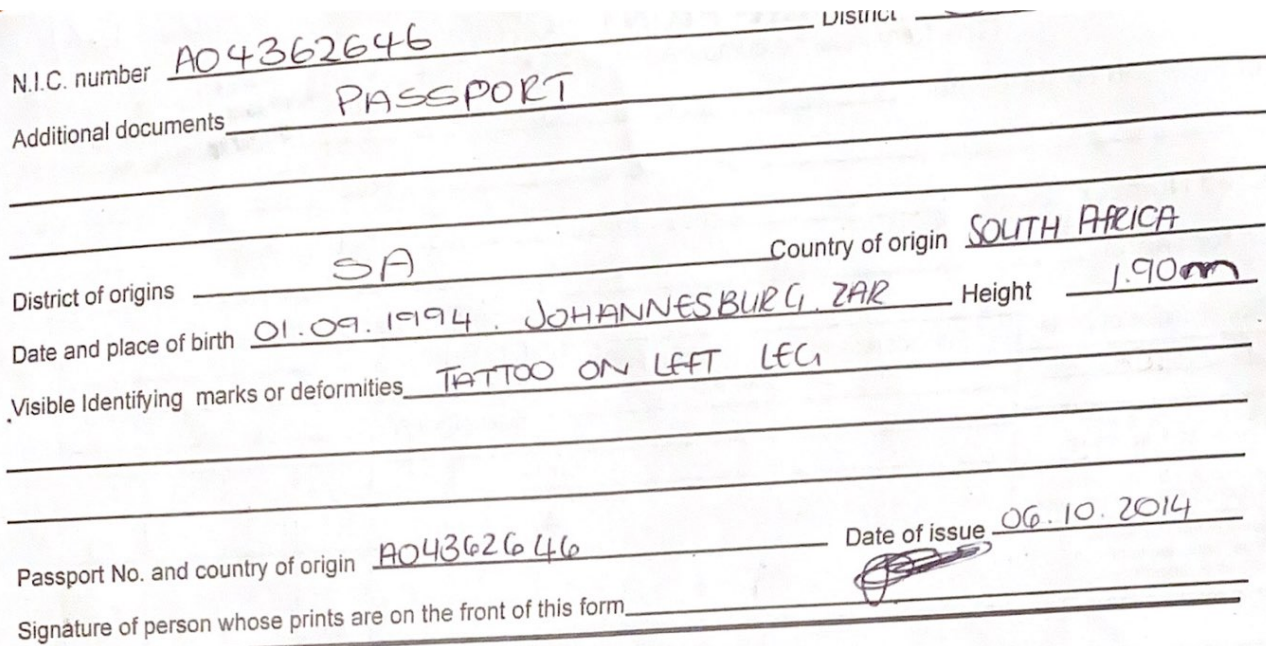 District
N.I.C. number A04362646
Additional documents PASSPORT
District of origins SA Country of origin SOUTH AFRICA
Date and place of birth 01.09.1994. JOHANNESBURG, ZAR Height 1.90m
Visible Identifying marks or deformities TATTOO ON LEFT LEG
Passport No. and country of origin A04362646 Date of issue 06.10.2014
Signature of person whose prints are on the front of this form